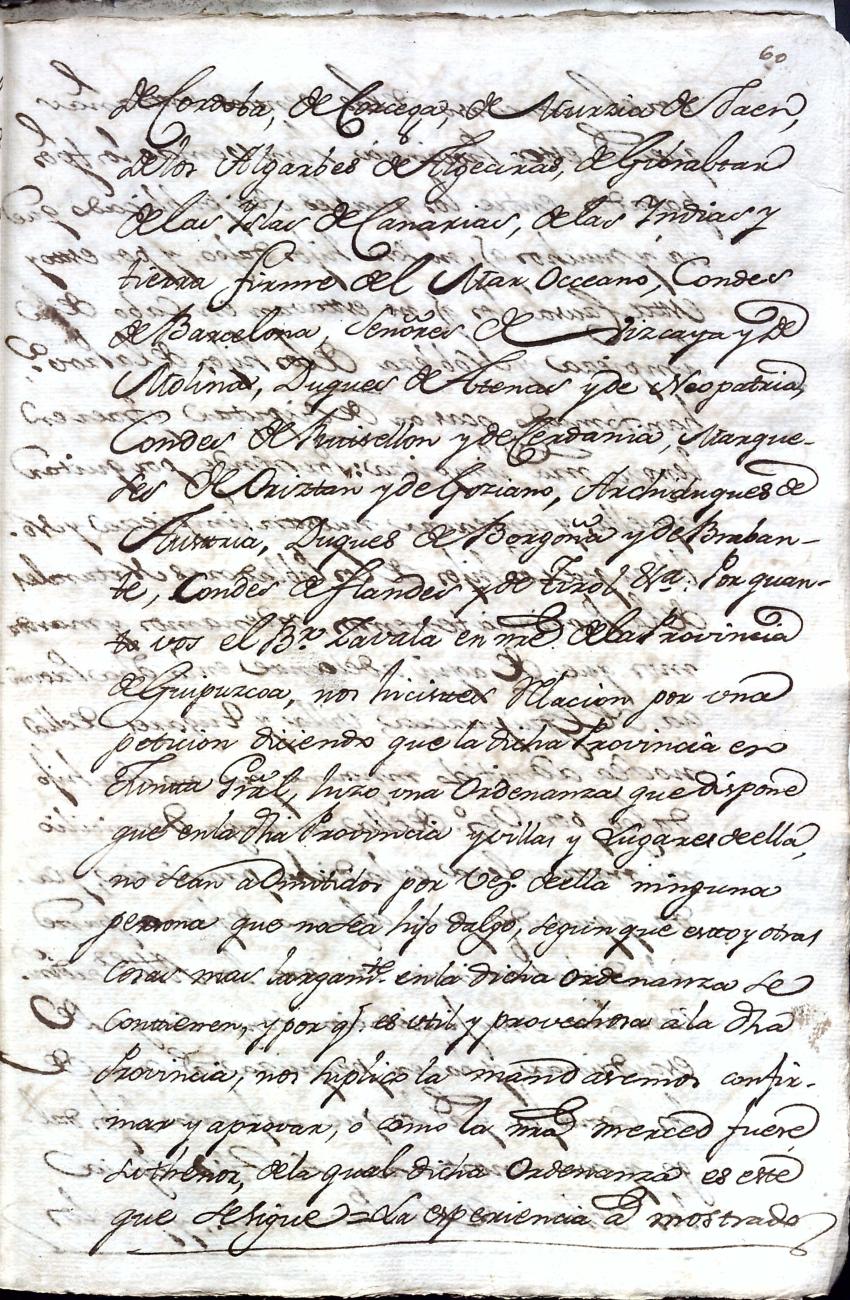 60
de Cordoba, de Corcega, de Murzia de Jaen,
de los Algarbes de Algeciras, de Gibraltar
de las Yslas de Canarias, de las Yndias y
tierra firme del Mar Occeano, Condes
de Barcelona, Señores de Vizcaya y de
Molina, Duques de Atenas y de Neopatria,
Condes de Ruisellon y de Cerdania, Marque-
ses de Oriztan y de Goziano, Archiduques de
Austria, Duques de Borgoña y de Braban-
te, Condes de Flandes y de Tirol, &ra. Por quan-
to vos el Br. Zavala en nre. de la Provincia
de Guipuzcoa, nos hicistes Rlacion por una
peticion diciendo que la dicha Provincia en
Junta Gral, hizo una Ordenanza que dispone
que en la dha Provincia y villas y Lugares de ella,
no sean admitidos por Vez.s de ella ninguna
persona que no sea hijo dalgo, segun que esto y otras
cosas mas largamte. en la dicha Ordenanza se
contienen, y por q. es util y provechosa a la dha
Provincia, nos suplico la mandasemos confir-
mar y aprovar, ó como la nra merced fuere,
su thenor, de la qual dicha Ordenanza es este
que se sigue = La experiencia a mostrado